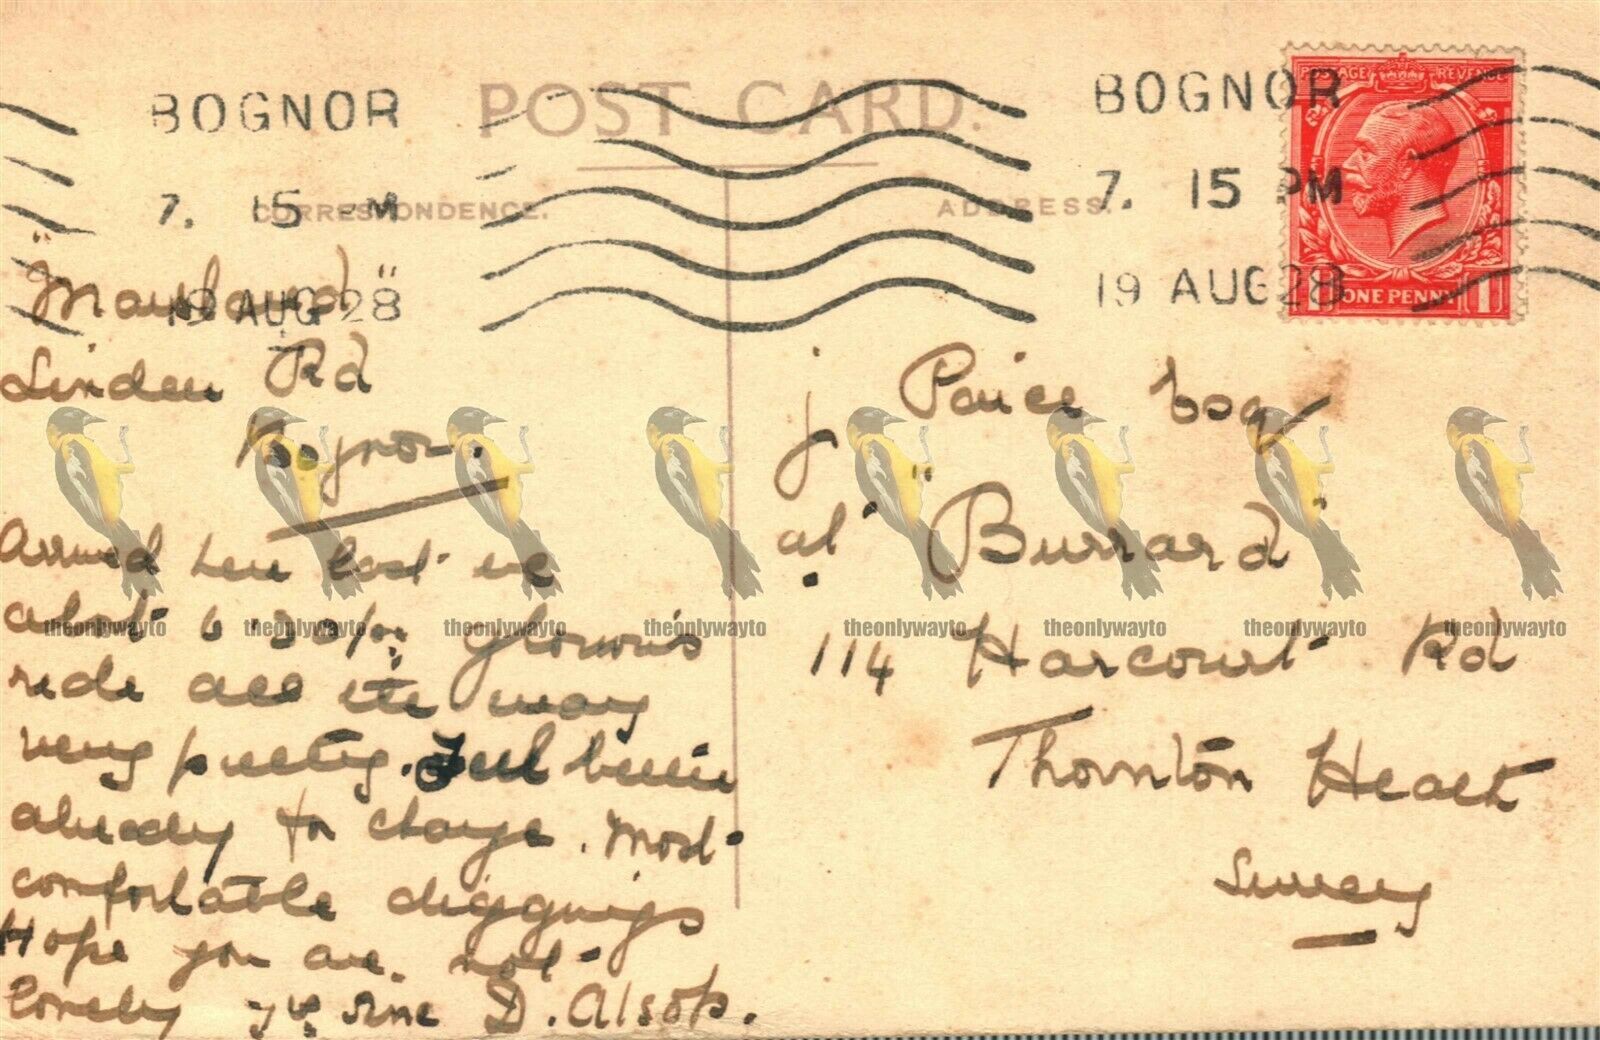 POST CARD.
BOGNOR
7. 15 PM
19 AUG 28
BOGNOR
7. 15 PM
19 AUG 28
POSTAGE REVENUE
1 ONE PENNY 1
CORRESPONDENCE.
ADDRESS.
Linden Rd
Bognor.
Arrived here last eve
about 6.30/pm glorious
ride all the way
very pretty. Feel better
already for change. Most
comfortable diggings
Hope you are not
lonely yrs sinc D. Alsop.
J Paice Esq
at "Burrard"
114 Harcourt Rd
Thornton Heath
Surrey
theonlywayto theonlywayto theonlywayto theonlywayto theonlywayto theonlywayto theonlywayto theonlywayto